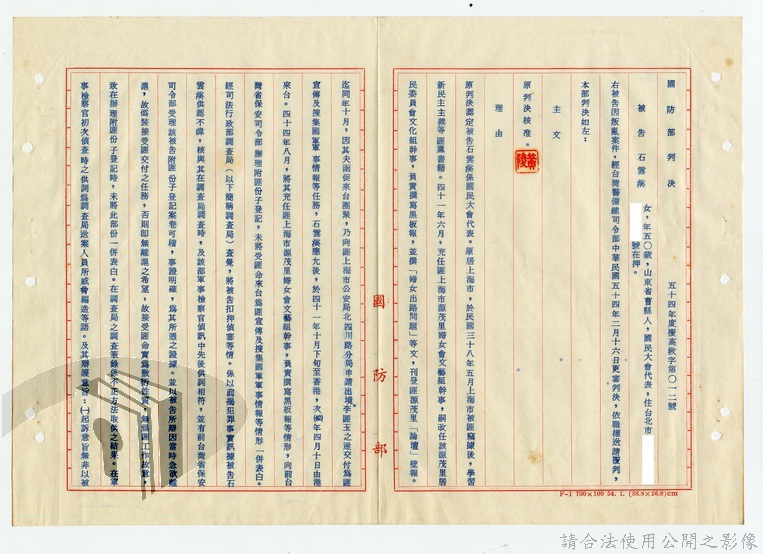 國防部判決
五十四年度覆高教字第〇一二號
被告 石雲溪
女,年五〇歲,山東省曹縣人,國民大會代表,住台北市
號在押。
右被告因叛亂案件,經台灣警備總司令部中華民國五十四年二月十六日更審判決,依職權送請覆判,
本部判決如左:
主文
原判決核准。
理由
原判決認定被告石雲溪係國民大會代表。原居上海市,於民國三十八年五月上海市被匪竊據後,學習
新民主主義等匪黨書籍。四十一年六月,充任匪上海市源茂里婦女會文藝組幹事,嗣改任該源茂里居
民委員會文化組幹事,負責撰寫黑板報,並撰「婦女出路問題」等文,刊登匪源茂里「論壇」壁報。
迄同年十月,因其夫函促來台團聚,乃向匪上海市公安局北四川路分局申請出境,李匪玉之遂交付為匪
宣傳及搜集國軍軍事情報等任務,石雲溪應允後,於四十一年十月下旬至香港,次年四月十日由港
來台。四十四年八月,將其充任匪上海市源茂里婦女會文藝組幹事,負責撰寫黑板報等情形,向前台
灣省保安司令部辦理附匪份子登記,未將受匪命來台為匪宣傳及搜集國軍軍事情報等情形一併表白。
經司法行政部調查局(以下簡稱調查局)查覺,將被告扣押偵審等情。係以前揭犯罪事實訊據被告石
雲溪供認不諱,核與其在調查局調查時,及該部軍事檢察官偵訊中先後供詞相符,並有前台灣省保安
司令部受理該被告附匪份子登記案卷可稽,事證明確,為其所憑之證據。並以被告所辯因當時急欲離
滬,故偽裝接受匪交付之任務,否則即無離滬之希望,故接受匪命實為敷衍性質,無為匪工作故意,
致在辦理附匪份子登記時,未將此部份一併表白。在調查局之調查筆錄係不正方法取供之結果。在軍
事檢察官初次偵查時之供詞為調查局送案人員所威脅編造等語。及其辯護意旨:㈠起訴意旨無非以被
國防部
F-1 700×100 54. 1. (38.8×26.8)cm
請合法使用公開之影像